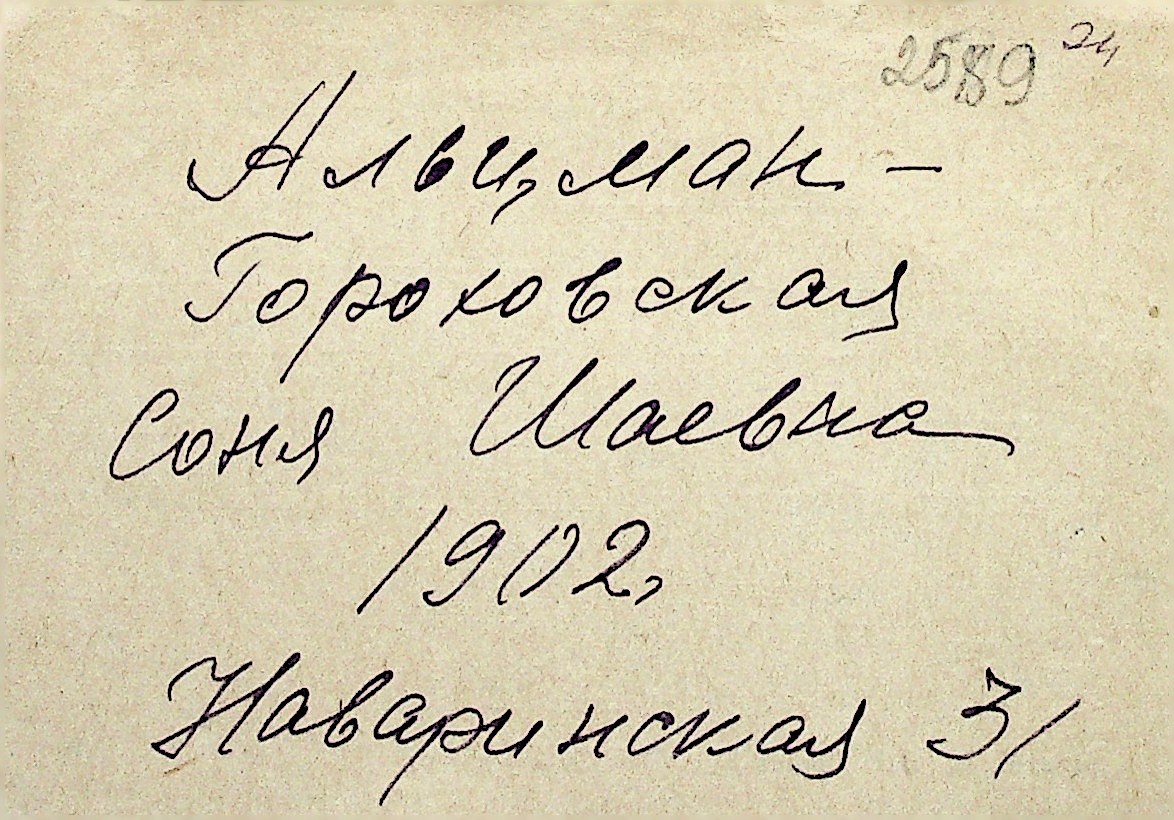 2589 24
Альцман -
Гороховская
Соня Шаевна
1902,
Наваринская 31